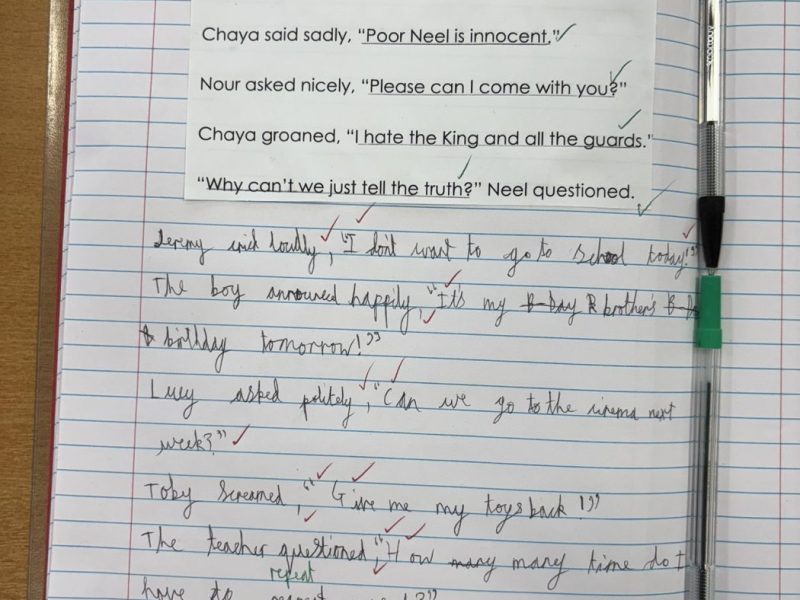 Chaya said sadly, “Poor Neel is innocent.”
Nour asked nicely, “Please can I come with you?”
Chaya groaned, “I hate the King and all the guards.”
“Why can’t we just tell the truth?” Neel questioned.
Jeremy cried loudly, “I don't want to go to school today!”
The boy announced happily, “It's my B-Day brother's B-D
birthday tomorrow!”
Lucy asked politely, “Can we go to the cinema next
week?”
Toby screamed, “Give me my toys back!”
The teacher questioned, “How many many time do I
repeat
have to